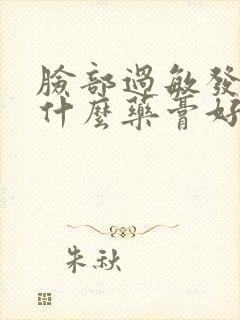 臉部過敏發
什麼藥膏好
朱秋